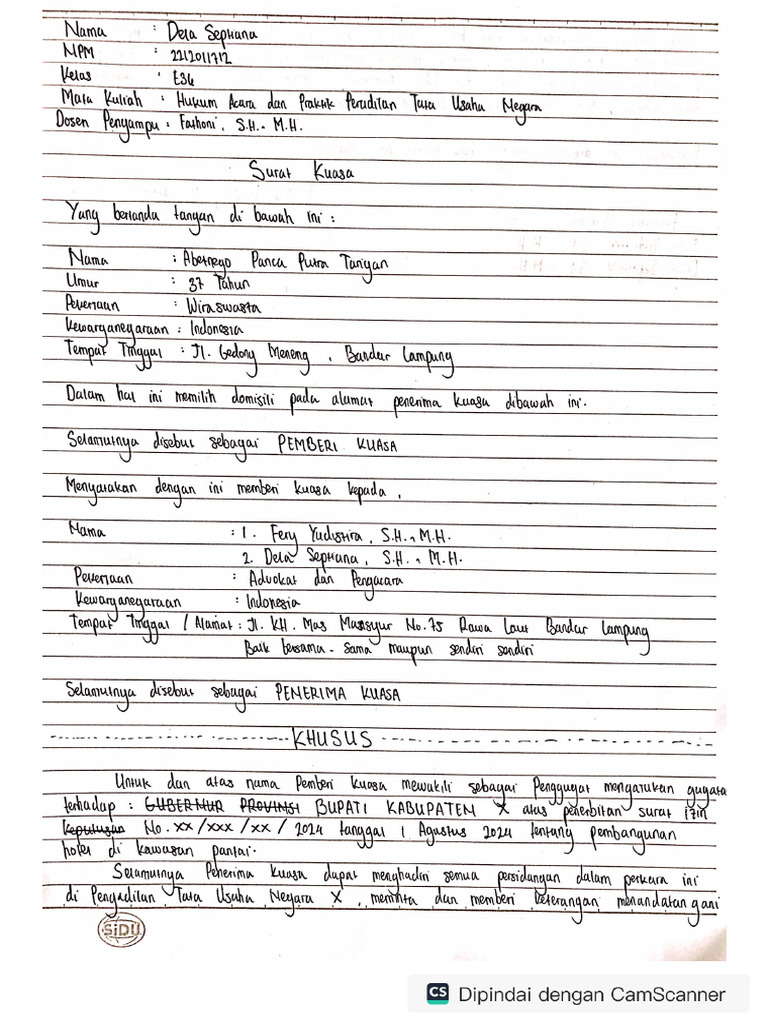 Nama : Dela Septiana
NPM : 2212011712
Kelas : E34
Mata Kuliah : Hukum Acara dan Praktik Peradilan Tata Usaha Negara
Dosen Pengampu : Fathoni, S.H., M.H.
Surat Kuasa
Yang bertanda tangan di bawah ini :
Nama : Abetnego Panca Putra Tarigan
Umur : 37 Tahun
Pekerjaan : Wiraswasta
Kewarganegaraan : Indonesia
Tempat Tinggal : Jl. Gedong Meneng, Bandar Lampung
Dalam hal ini memilih domisili pada alamat penerima kuasa dibawah ini.
Selanjutnya disebut sebagai PEMBERI KUASA
Menyatakan dengan ini memberi kuasa kepada,
Nama : 1. Fery Yudistira, S.H., M.H.
2. Dela Septiana, S.H., M.H.
Pekerjaan : Advokat dan Pengacara
Kewarganegaraan : Indonesia
Tempat Tinggal / Alamat : Jl. KH. Mas Mansyur No.75 Rawa Laut Bandar Lampung
Baik bersama-sama maupun sendiri sendiri
Selanjutnya disebut sebagai PENERIMA KUASA
KHUSUS
Untuk dan atas nama Pemberi kuasa mewakili sebagai Penggugat mengajukan gugata
terhadap : GUBERNUR PROVINSI BUPATI KABUPATEN X atas penerbitan surat izin
keputusan No. xx/xxx/xx/2024 tanggal 1 Agustus 2024 tentang pembangunan
hotel di kawasan pantai.
Selanjutnya Penerima kuasa dapat menghadiri semua persidangan dalam perkara ini
di Pengadilan Tata Usaha Negara X, meminta dan memberi keterangan menandatangani
SiDU
CS Dipindai dengan CamScanner